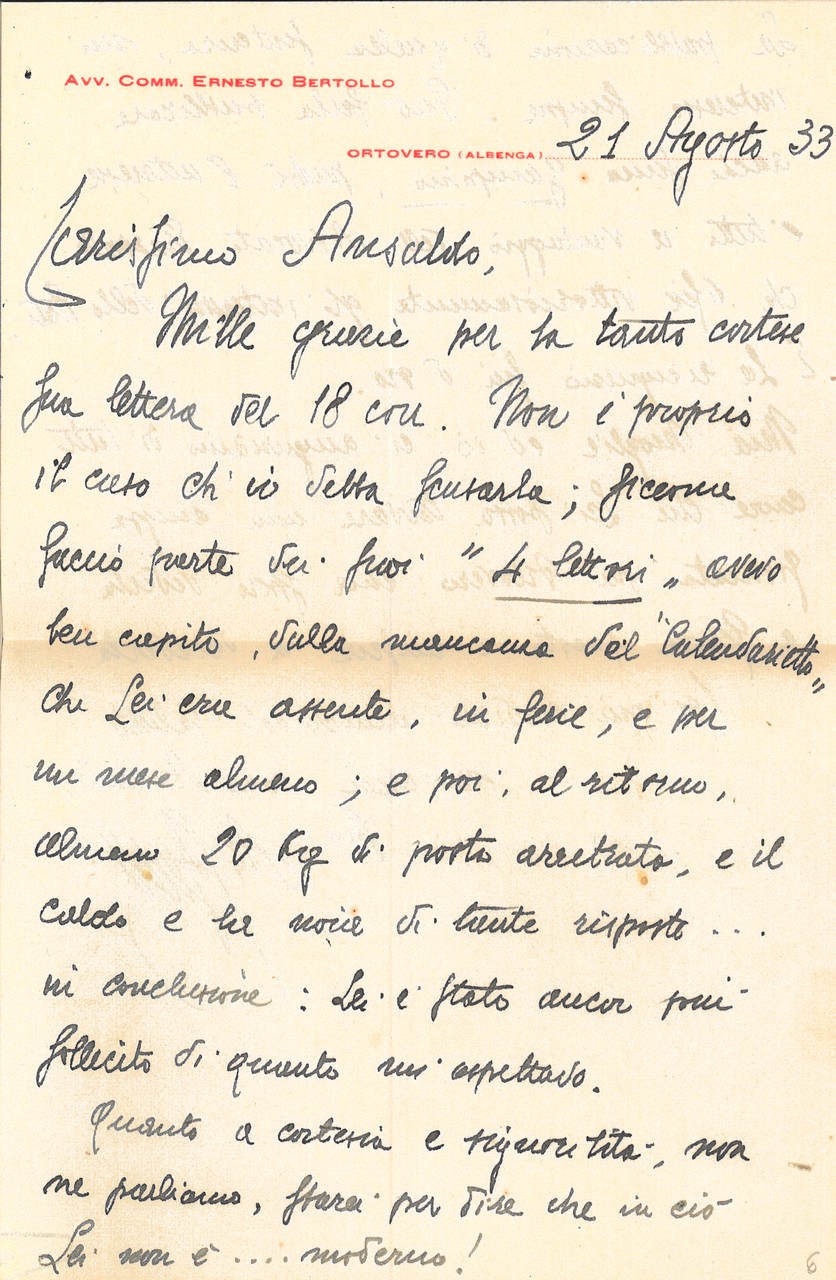 AVV. COMM. ERNESTO BERTOLLO
ORTOVERO (ALBENGA) 21 Agosto 33
Carissimo Ansaldo,
Mille grazie per la tanto cortese
sua lettera del 18 corr. Non è proprio
il caso ch'io debba scusarla; siccome
faccio parte dei suoi "4 lettori" avevo
ben capito, dalla mancanza del "Calendarietto"
che Lei era assente, in ferie, e per
un mese almeno; e poi, al ritorno,
almeno 20 Kg di posta arretrata, e il
caldo e la noia di tante risposte ...
in conclusione: Lei è stato ancor più
sollecito di quanto mi aspettavo.
Quanto a cortesia e signorilità, non
ne parliamo, starei per dire che in ciò
Lei non è .... moderno!
6